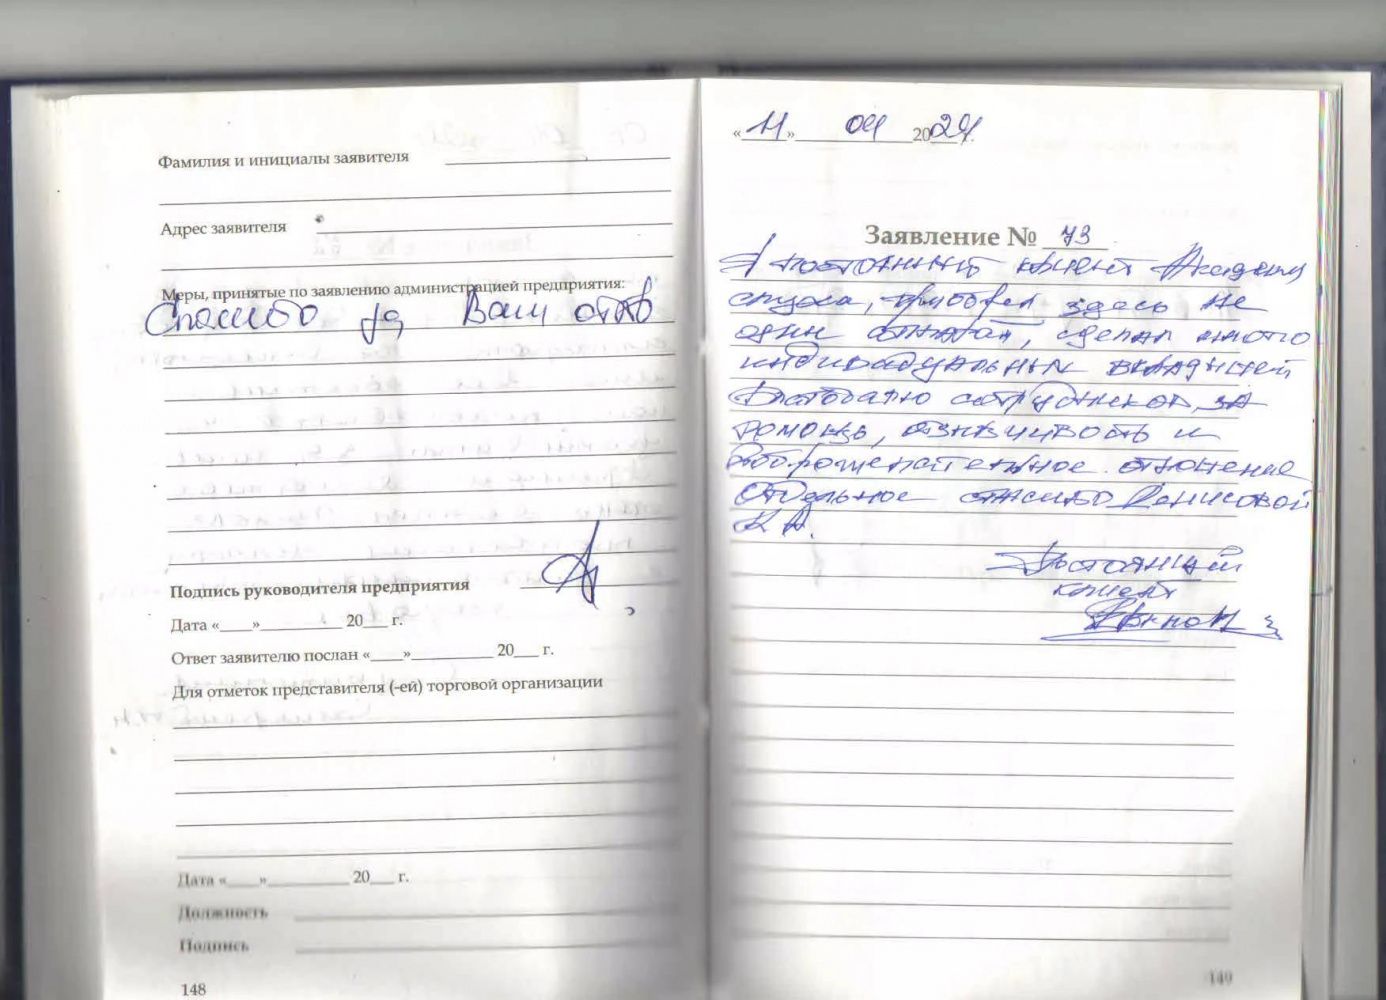 Фамилия и инициалы заявителя
Адрес заявителя
Меры, принятые по заявлению администрацией предприятия:
Спасибо за Ваш отзыв
Подпись руководителя предприятия
Дата «____»__________ 20___ г.
Ответ заявителю послан «____»__________ 20___ г.
Для отметок представителя (-ей) торговой организации
Дата «____»__________ 20___ г.
Должность
Подпись
148
«11» 04 2024.
Заявление № 73
Я постоянный клиент Академии
слуха, приобрел здесь не
один аппарат, сделал много
индивидуальных вкладышей
Благодарю сотрудников за
помощь, отзывчивость и
доброжелательное отношение
Отдельное спасибо Денисовой
К А.
Постоянный
клиент
149